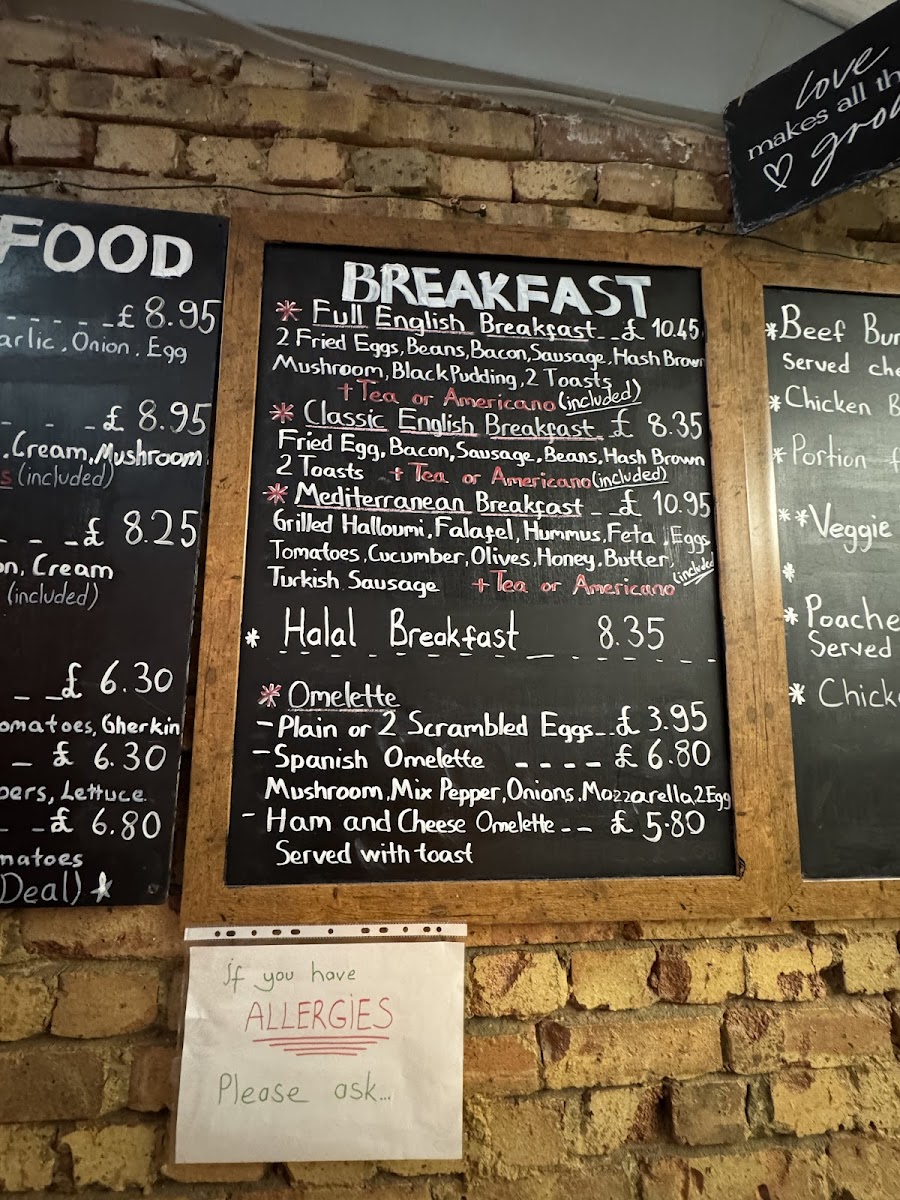 FOOD
£ 8.95
arlic, Onion, Egg
£ 8.95
, Cream, Mushroom
(included)
£ 8.25
on, Cream
(included)
£ 6.30
omatoes, Gherkin
£ 6.30
pers, Lettuce
£ 6.80
matoes
Deal) *
BREAKFAST
* Full English Breakfast _ _ £ 10.45
2 Fried Eggs, Beans, Bacon, Sausage, Hash Brown
Mushroom, Black Pudding, 2 Toasts
+ Tea or Americano (included)
* Classic English Breakfast _ £ 8.35
Fried Egg, Bacon, Sausage, Beans, Hash Brown
2 Toasts + Tea or Americano (included)
* Mediterranean Breakfast _ _ £ 10.95
Grilled Halloumi, Falafel, Hummus, Feta, Eggs
Tomatoes, Cucumber, Olives, Honey, Butter,
Turkish Sausage + Tea or Americano (included)
* Halal Breakfast 8.35
* Omelette
- Plain or 2 Scrambled Eggs _ _ £ 3.95
- Spanish Omelette _ _ _ _ £ 6.80
Mushroom, Mix Pepper, Onions, Mozzarella, 2 Egg
- Ham and Cheese Omelette _ _ £ 5.80
Served with toast
love
makes all th
grow
* Beef Bur
Served che
* Chicken B
* Portion f
* * Veggie
*
* Poache
Served
* Chick
if you have
ALLERGIES
Please ask...